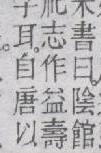 書曰陰館
志作益壽
耳。自唐以